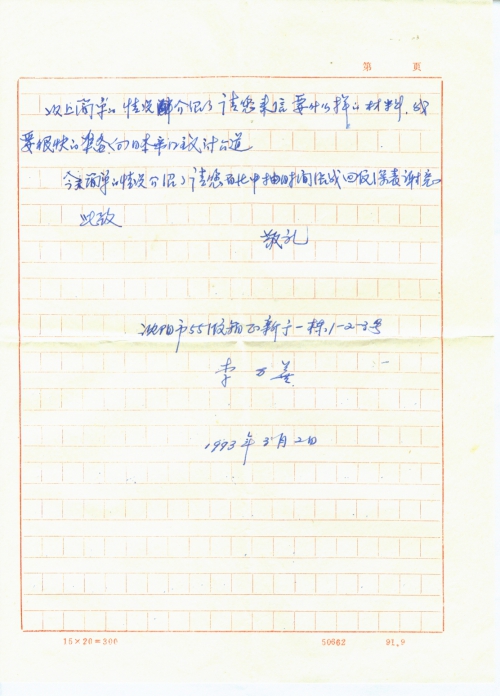 第 页
以上简单的情况介绍了请您来信要什么样的材料,我
要很快的准备,向日本帝国主义讨公道
今天简单的情况介绍了请您百忙中抽时间给我回信深表谢意。
此致
敬礼
沈阳市551
新 一栋,1-2-3号
李万善
1993年3月2日
15×20=300 50662 91.9